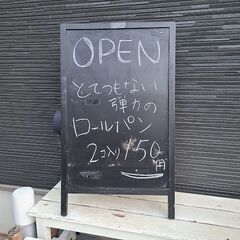 OPEN
とてつもない
弾力の
ロールパン
2コ入り150円